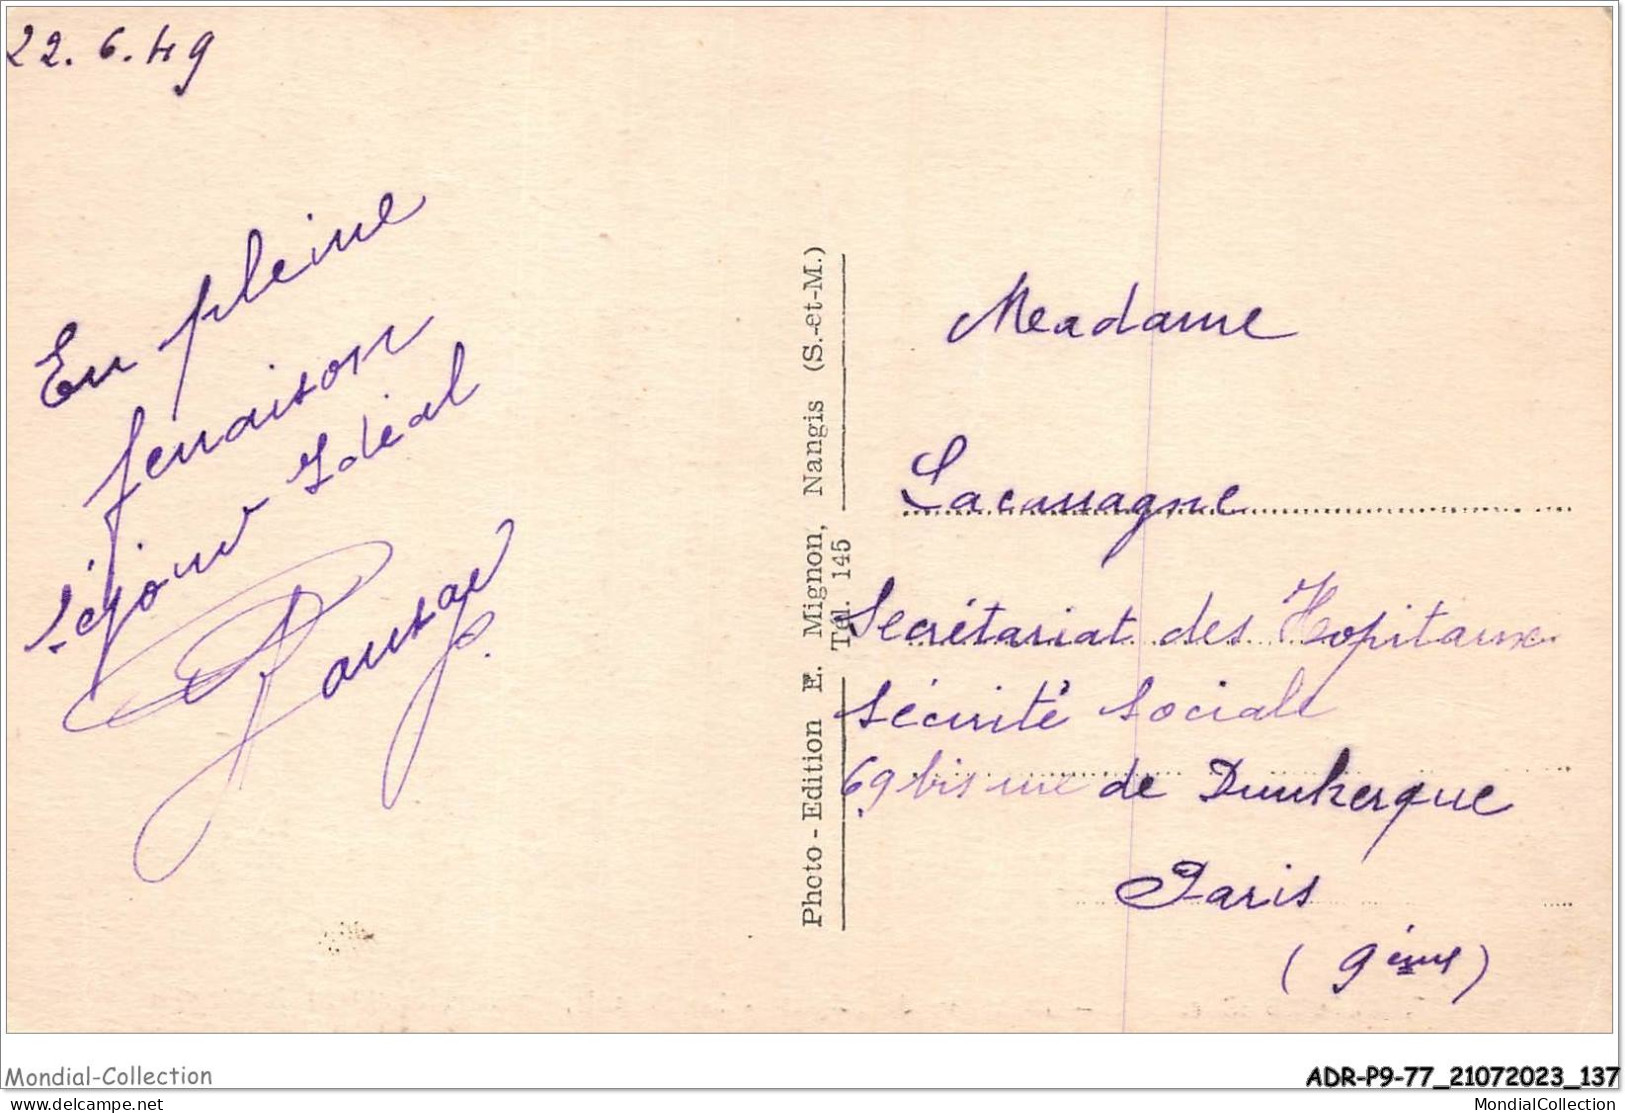 22.6.49
En pleine
fenaison
Séjour Idéal
Photo - Edition E. Mignon, Nangis (S.-et-M.)
Tél. 145
Madame
Lacassagne
Secrétariat des Hopitaux
Sécurité Sociale
69 bis rue de Dunkerque
Paris
(9ème)
Mondial-Collection
ADR-P9-77_21072023_137
delcampe.net
MondialCollection